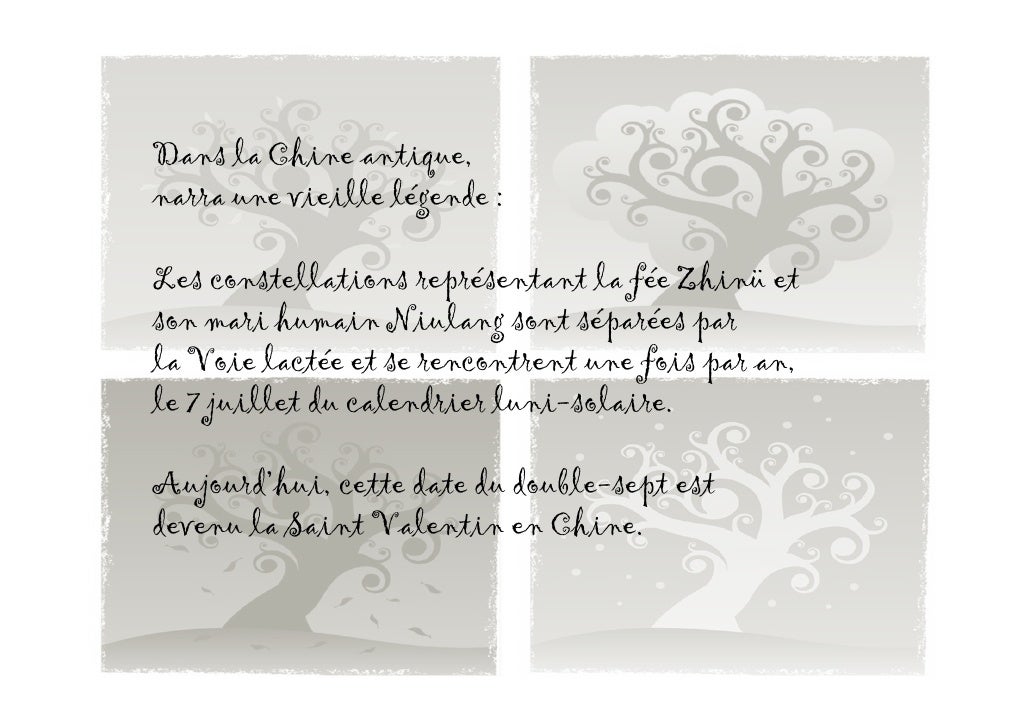 Dans la Chine antique,
narra une vieille légende :
Les constellations représentant la fée Zhinü et
son mari humain Niulang sont séparées par
la Voie lactée et se rencontrent une fois par an,
le 7 juillet du calendrier luni-solaire.
Aujourd'hui, cette date du double-sept est
devenu la Saint Valentin en Chine.